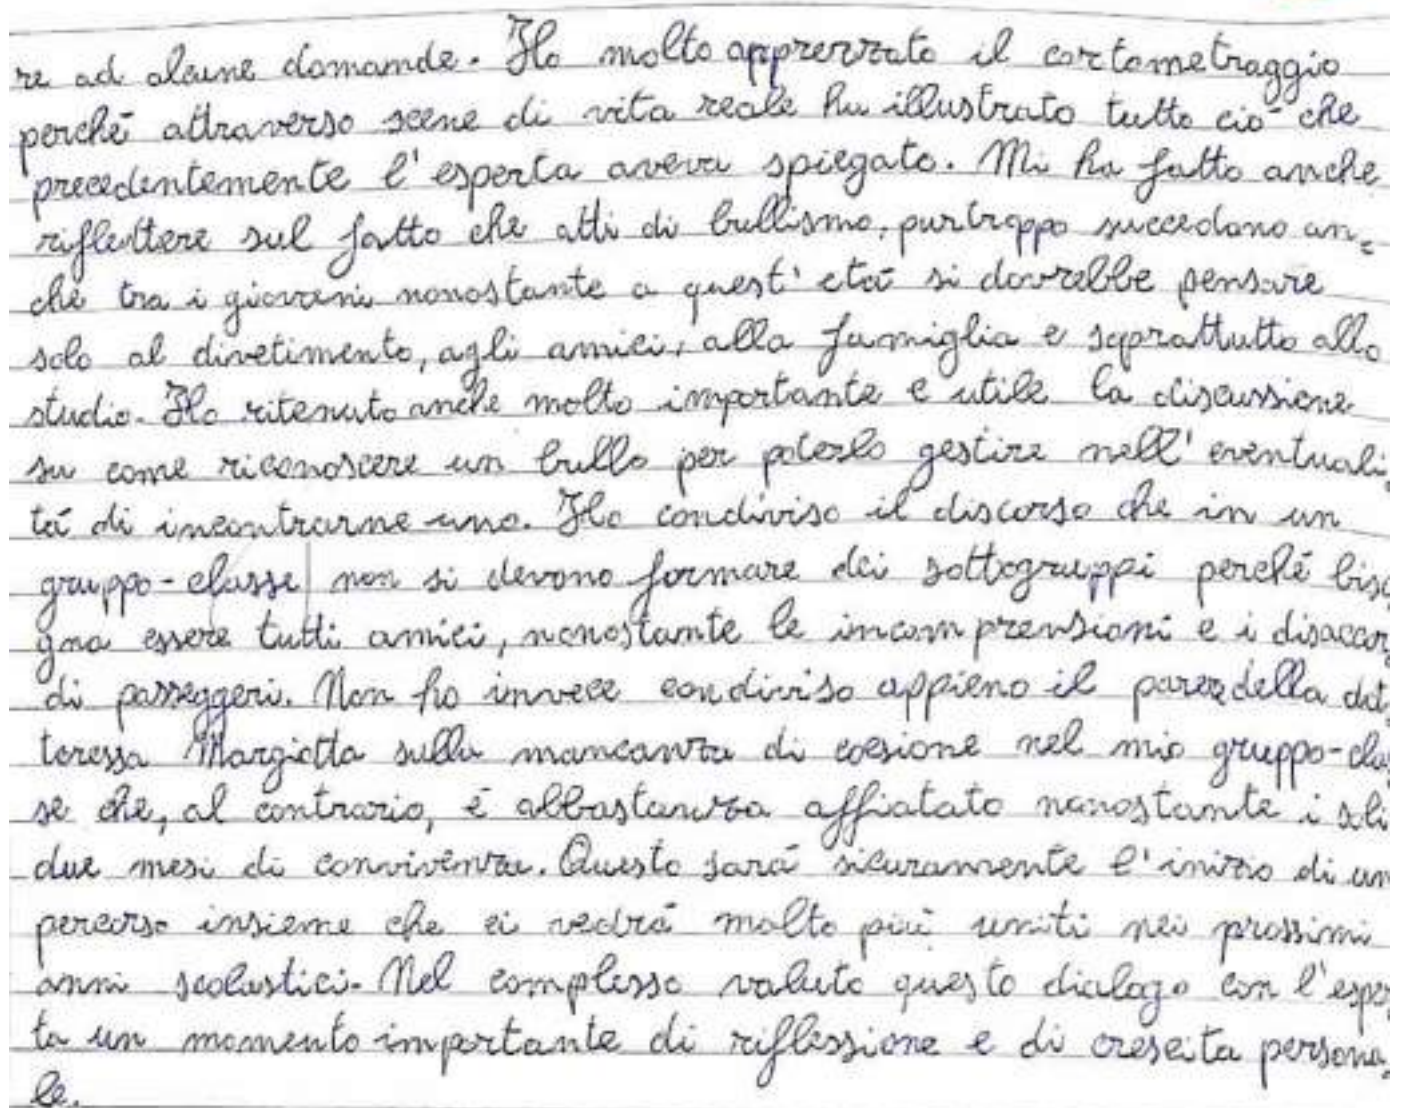 re ad alcune domande. Ho molto apprezzato il cortometraggio
perché attraverso scene di vita reale ha illustrato tutto ciò che
precedentemente l'esperta aveva spiegato. Mi ha fatto anche
riflettere sul fatto che atti di bullismo, purtroppo succedono an=
che tra i giovani nonostante a quest'età si dovrebbe pensare
solo al divetimento, agli amici, alla famiglia e soprattutto allo
studio. Ho ritenuto anche molto importante e utile la discussione
su come riconoscere un bullo per poterlo gestire nell'eventuali=
tà di incontrarne uno. Ho condiviso il discorso che in un
gruppo-classe non si devono formare dei sottogruppi perché biso
gna essere tutti amici, nonostante le incomprensioni e i disaccor
di passeggeri. Non ho invece condiviso appieno il parere della dot
toressa Margiotta sulla mancanza di coesione nel mio gruppo-clas
se che, al contrario, è abbastanza affiatato nonostante i soli
due mesi di convivenza. Questo sarà sicuramente l'inizio di un
percorso insieme che ci vedrà molto più uniti nei prossimi
anni scolastici. Nel complesso valuto questo dialogo con l'esper
ta un momento importante di riflessione e di crescita persona=
le.